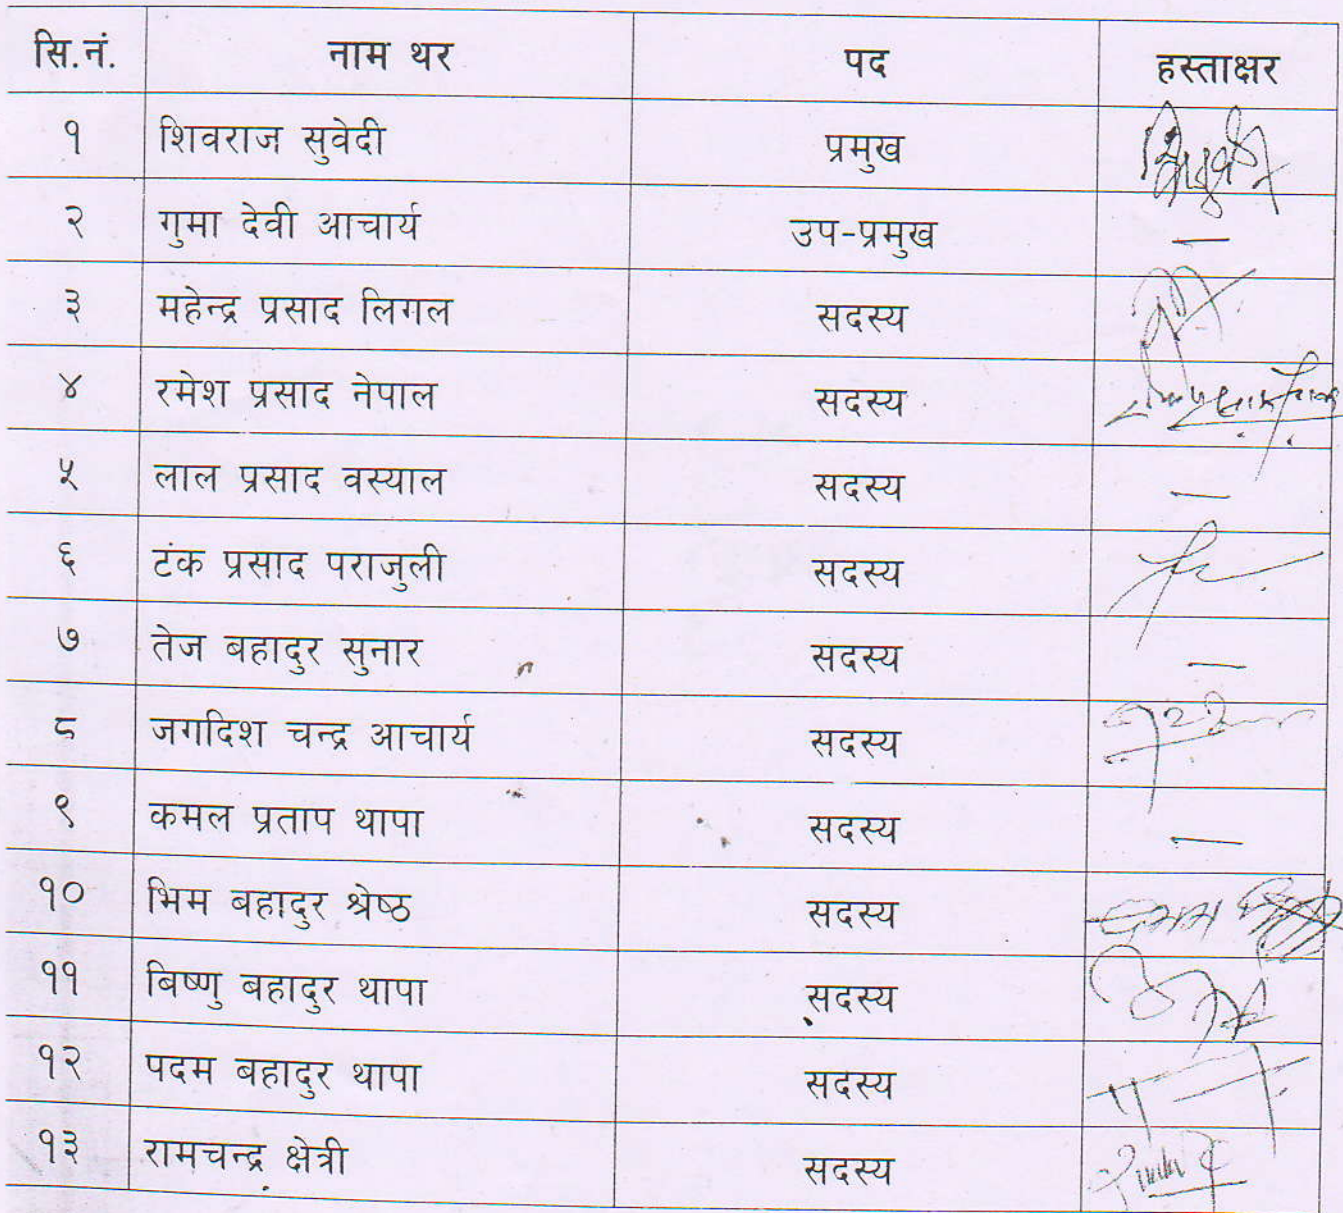 सि.नं. नाम थर पद हस्ताक्षर
१ शिवराज सुवेदी प्रमुख
२ गुमा देवी आचार्य उप-प्रमुख —
३ महेन्द्र प्रसाद लिगल सदस्य
४ रमेश प्रसाद नेपाल सदस्य
५ लाल प्रसाद वस्याल सदस्य —
६ टंक प्रसाद पराजुली सदस्य
७ तेज बहादुर सुनार सदस्य —
८ जगदिश चन्द्र आचार्य सदस्य
९ कमल प्रताप थापा सदस्य —
१० भिम बहादुर श्रेष्ठ सदस्य
११ बिष्णु बहादुर थापा सदस्य
१२ पदम बहादुर थापा सदस्य
१३ रामचन्द्र क्षेत्री सदस्य